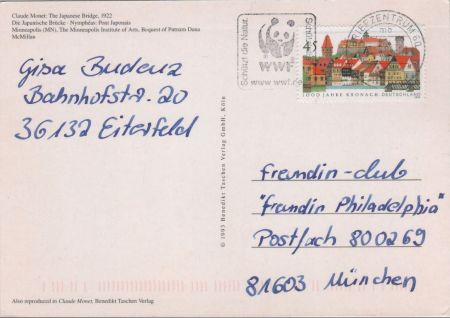 Claude Monet: The Japanese Bridge, 1922
Die Japanische Brücke · Nymphéas: Pont Japonais
Minneapolis (MN), The Minneapolis Institute of Arts, Bequest of Putnam Dana
McMillan
Gisa Budenz
Bahnhofstr. 20
36132 Eiterfeld
Schützt die Natur.
WWF
www.wwf.
Schützt
BRIEFZENTRUM 60
mb
45
1000 JAHRE KRONACH DEUTSCHLAND
© 1993 Benedikt Taschen Verlag GmbH, Köln
freundin-club
"freundin Philadelphia"
Postfach 800269
81603 München
Also reproduced in Claude Monet, Benedikt Taschen Verlag